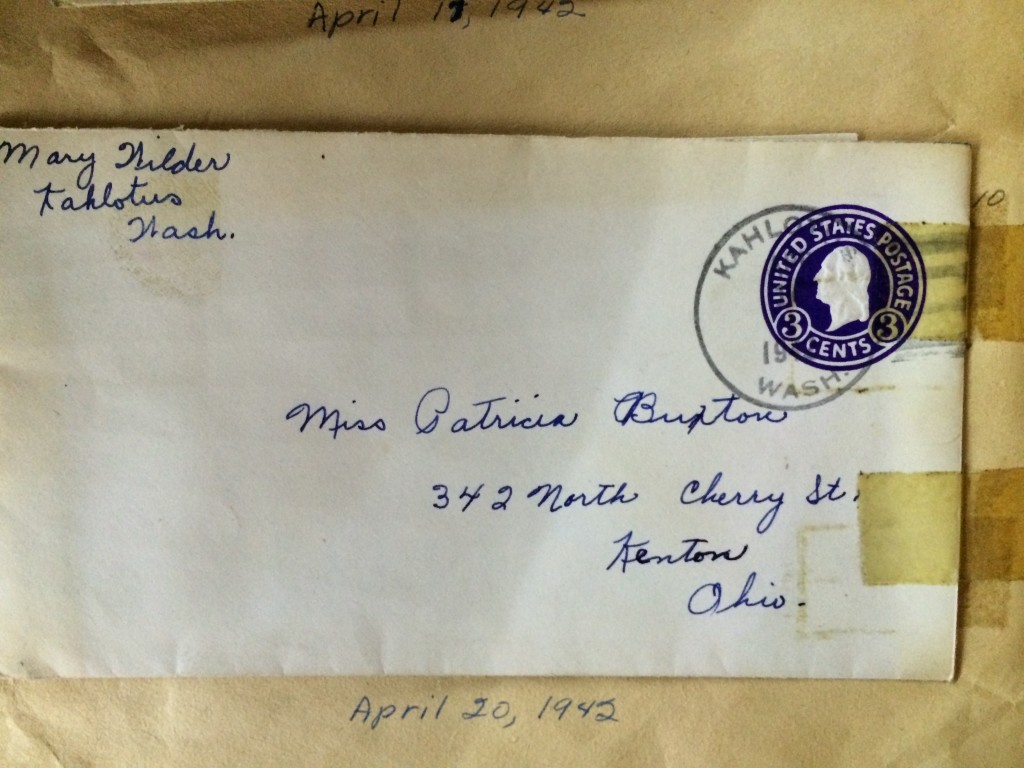 April 17, 1942
Mary Wilder
Kahlotus
Wash.
10
UNITED STATES POSTAGE
3 CENTS 3
WASH.
Miss Patricia Buxton
342 North Cherry St.
Kenton
Ohio.
April 20, 1942